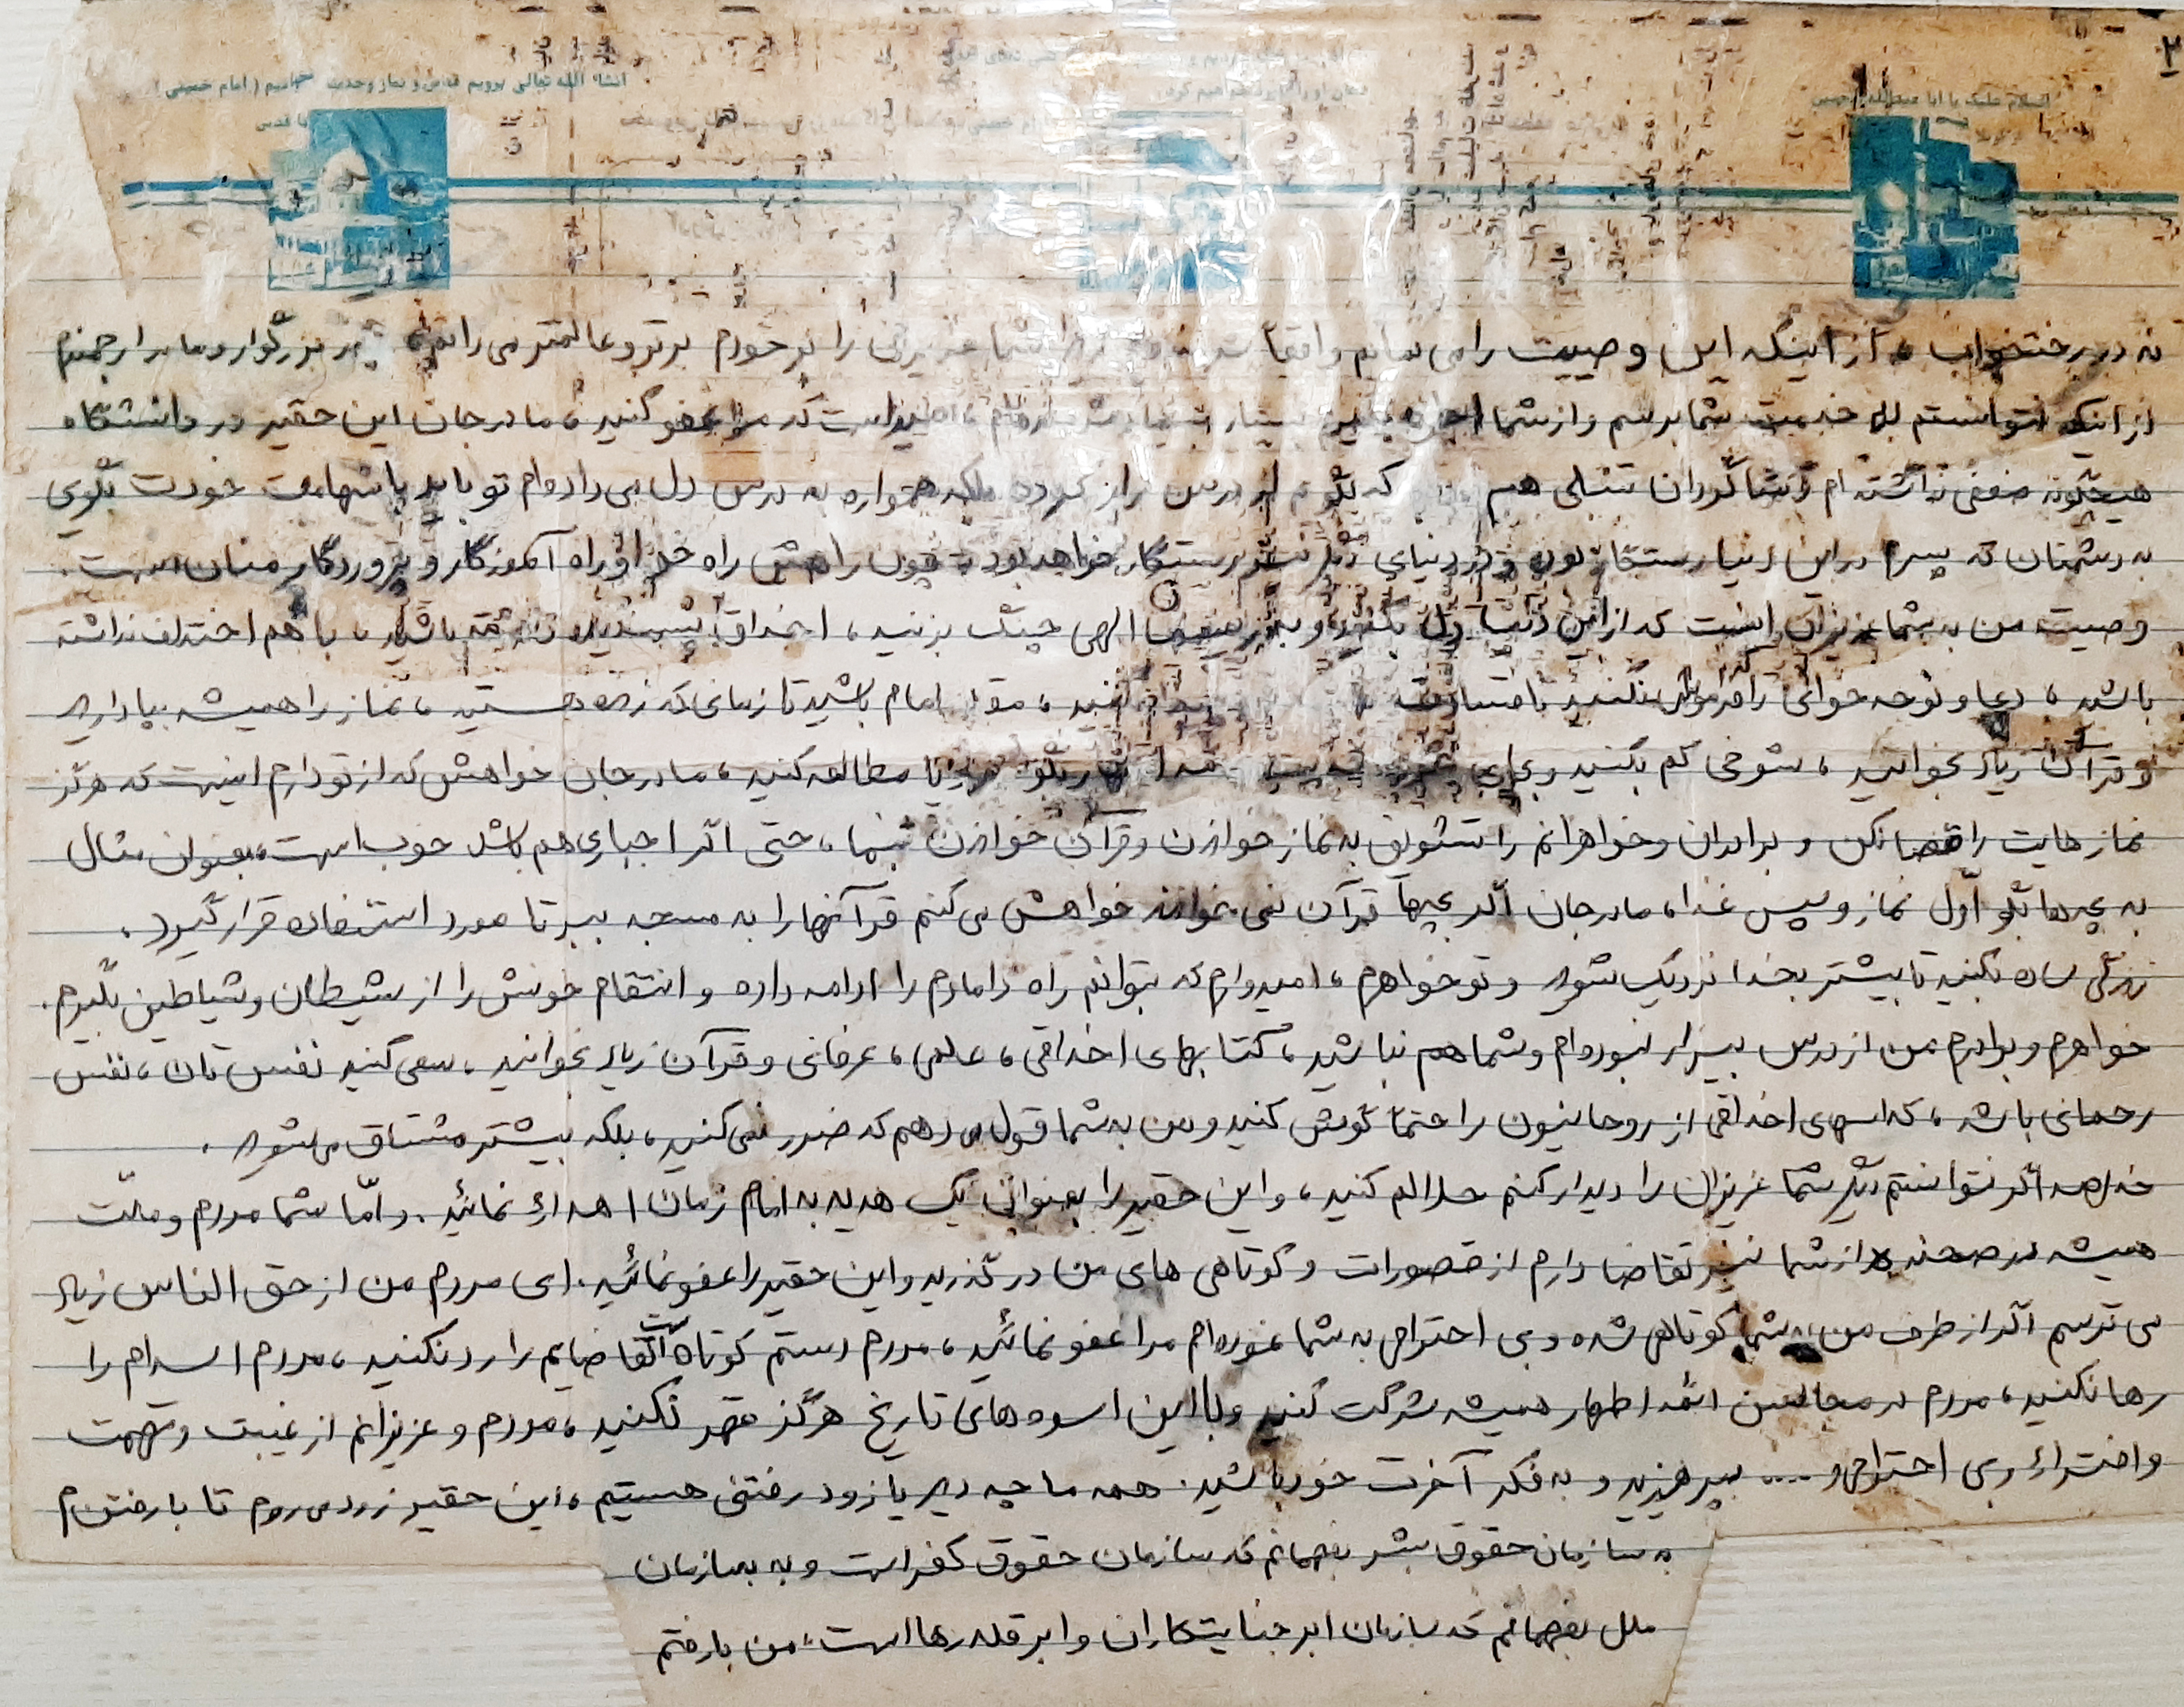 ۲
السلام علیک یا ابا عبدالله الحسین
انشاء الله تعالی برویم قدس و نماز وحدت بخوانیم (امام خمینی)
نه در رختخواب، از اینکه این وصیت را می نمایم واقعاً شما عزیزان را از خودم برتر و عالمتر می دانم پدر بزرگوار و مادر ارجمندم
از اینکه نتوانستم به خدمت شما برسم و از شما اجازه بگیرم بسیار که مرا عفو کنید، مادر جان این حقیر در دانشگاه
هیچگونه ضعفی نداشته ام و شاگردان تنبلی هم که بگویم از درس فرار کرده بلکه همواره به درس دل می داده ام تو باید با شهامت خودت بگوی
به دشمنان که پسرم در این دنیا رستگار بود و در دنیای دیگر نیز رستگار خواهد بود چون راهش راه خدا و راه آموزگار و پروردگار منان است.
وصیت من به شما عزیزان اینست که از این دنیا دل بکنید و به الهی چنگ بزنید، اخلاق پسندیده داشته باشید، با هم اختلاف نداشته
باشید، دعا و نوحه خوانی را فراموش نکنید کنید، مقلد امام باشید تا زمانی که زنده هستید، نماز را همیشه بپا دارید
و قرآن زیاد بخوانید، شوخی کم بکنید و بجای یا مطالعه کنید، مادر جان خواهش که از تو دارم اینست که هرگز
نماز هایت را قضا نکن و برادران و خواهرانم را تشویق به نماز خواندن و قرآن خواندن بنما، حتی اگر اجباری هم باشد خوب است، بعنوان مثال
به بچه ها بگو اول نماز و سپس غذا، مادر جان اگر بچه‌ها قرآن نمی خوانند خواهش می کنم قرآنها را به مسجد ببر تا مورد استفاده قرار گیرد.
زندگی ساده بکنید تا بیشتر بخدا نزدیک شوید و تو خواهرم، امیدوارم که بتوانم راه دامادم را ادامه داده و انتقام خونش را از شیطان و شیاطین بگیرم.
خواهرم و برادرم من از درس بیزار نبوده ام و شما هم نباشید، کتابهای اخلاقی، علمی، عرفانی و قرآن زیاد بخوانید، سعی کنید نفس تان، نفس
رحمانی باشد، کلاسهای اخلاقی از روحانیون را حتماً گوش کنید و من به شما قول می دهم که ضرر نمی کنید، بلکه بیشتر مشتاق می شوید.
خلاصه اگر نتوانستم دیگر شما عزیزان را دیدار کنم حلالم کنید، و این حقیر را بعنوان یک هدیه به امام زمان اهداء نمائید. و امّا شما مردم و ملت
همیشه در صحنه از شما نیز تقاضا دارم از قصورات و کوتاهی های من در گذرید و این حقیر را عفو نمائید. ای مردم من از حق الناس زیاد
می ترسم اگر از طرف من به شما کوتاهی شده و بی احترامی به شما نموده ام مرا عفو نمائید، مردم دستم کوتاه است تقاضایم را رد نکنید، مردم اسلام را
رها نکنید، مردم در مجالس ائمه اطهار همیشه شرکت کنید و با این اسوه های تاریخ هرگز قهر نکنید، مردم و عزیزانم از غیبت و تهمت
و افتراء و بی احترامی و .... بپرهیزید و به فکر آخرت خود باشید. همه ما چه دیر یا زود رفتنی هستیم، این حقیر زود می روم تا با رفتنم
به سازمان حقوق بشر بفهمانم که سازمان حقوق کفر است و به سازمان
ملل بفهمانم که سازمان ابر جنایتکاران و ابر قلدرها است، من با رفتنم